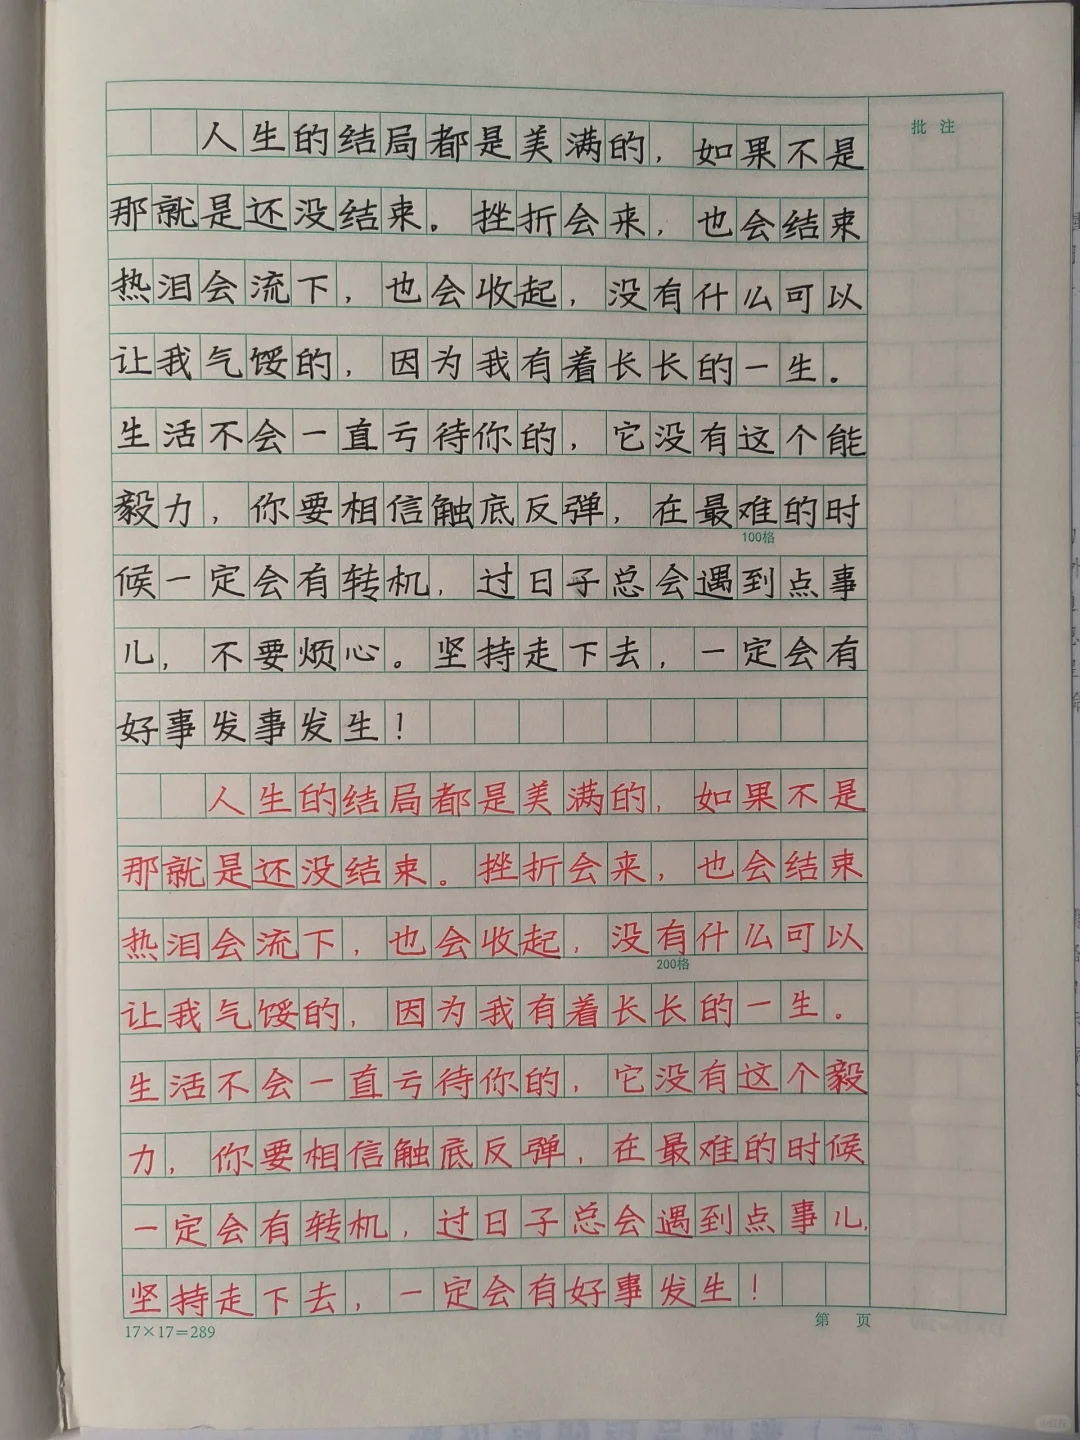 人生的结局都是美满的，如果不是
那就是还没结束。挫折会来，也会结束
热泪会流下，也会收起，没有什么可以
让我气馁的，因为我有着长长的一生。
生活不会一直亏待你的，它没有这个能
毅力，你要相信触底反弹，在最难的时
100格
候一定会有转机，过日子总会遇到点事
儿，不要烦心。坚持走下去，一定会有
好事发事发生！
人生的结局都是美满的，如果不是
那就是还没结束。挫折会来，也会结束
热泪会流下，也会收起，没有什么可以
200格
让我气馁的，因为我有着长长的一生。
生活不会一直亏待你的，它没有这个毅
力，你要相信触底反弹，在最难的时候
一定会有转机，过日子总会遇到点事儿，
坚持走下去，一定会有好事发生！
17×17=289
第 页
批 注